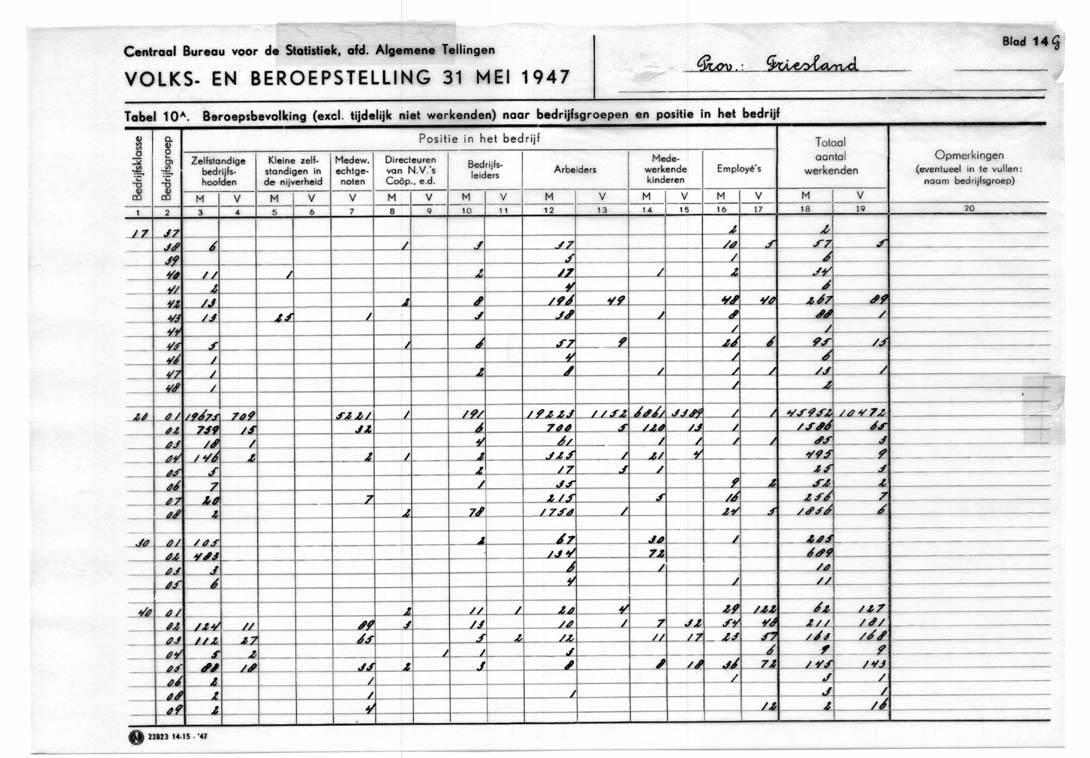 Centraal Bureau voor de Statistiek, afd. Algemene Tellingen
Blad 14 G
VOLKS- EN BEROEPSTELLING 31 MEI 1947
Prov.: Friesland
Tabel 10A. Beroepsbevolking (excl. tijdelijk niet werkenden) naar bedrijfsgroepen en positie in het bedrijf
Bedrijfsklasse
Bedrijfsgroep
Positie in het bedrijf
Zelfstandige bedrijfs-hoofden
Kleine zelf-standigen in de nijverheid
Medew. echtge-noten
Directeuren van N.V.'s Coöp., e.d.
Bedrijfs-leiders
Arbeiders
Mede-werkende kinderen
Employé's
Totaal aantal werkenden
Opmerkingen (eventueel in te vullen: naam bedrijfsgroep)
M V M V V M V M V M V M V M V M V
1 2 3 4 5 6 7 8 9 10 11 12 13 14 15 16 17 18 19 20
17 37 2 2
38 6 1 3 37 10 5 57 5
39 5 1 6
40 11 1 2 17 1 2 34
41 2 4 6
42 13 2 8 196 49 48 40 267 89
43 13 25 1 3 38 1 8 88 1
44 1 1
45 5 1 6 57 9 26 6 95 15
46 1 4 1 6
47 1 2 8 1 1 1 13 1
48 1 1 2
20 01 19675 709 5221 1 191 19223 1152 6861 3389 1 1 45952 10472
02 759 15 32 6 700 5 120 13 1 1586 65
03 18 1 4 61 1 1 1 1 85 3
04 146 2 2 1 2 325 1 21 4 495 9
05 5 2 17 3 1 25 3
06 7 1 35 9 2 52 2
07 20 7 215 5 16 256 7
08 2 2 78 1750 1 24 5 1856 6
30 01 105 2 67 30 1 205
02 483 134 72 689
03 3 6 1 10
05 6 4 1 11
40 01 2 11 1 20 4 29 122 62 127
02 124 11 89 3 13 10 1 7 32 54 48 211 181
03 112 27 65 5 2 12 11 17 23 57 160 168
04 5 2 1 1 3 6 9 9
05 88 18 35 2 3 8 8 18 36 72 145 143
06 2 1 1 3 1
08 2 1 1 3 1
09 2 4 12 2 16
22823 14-15 - '47